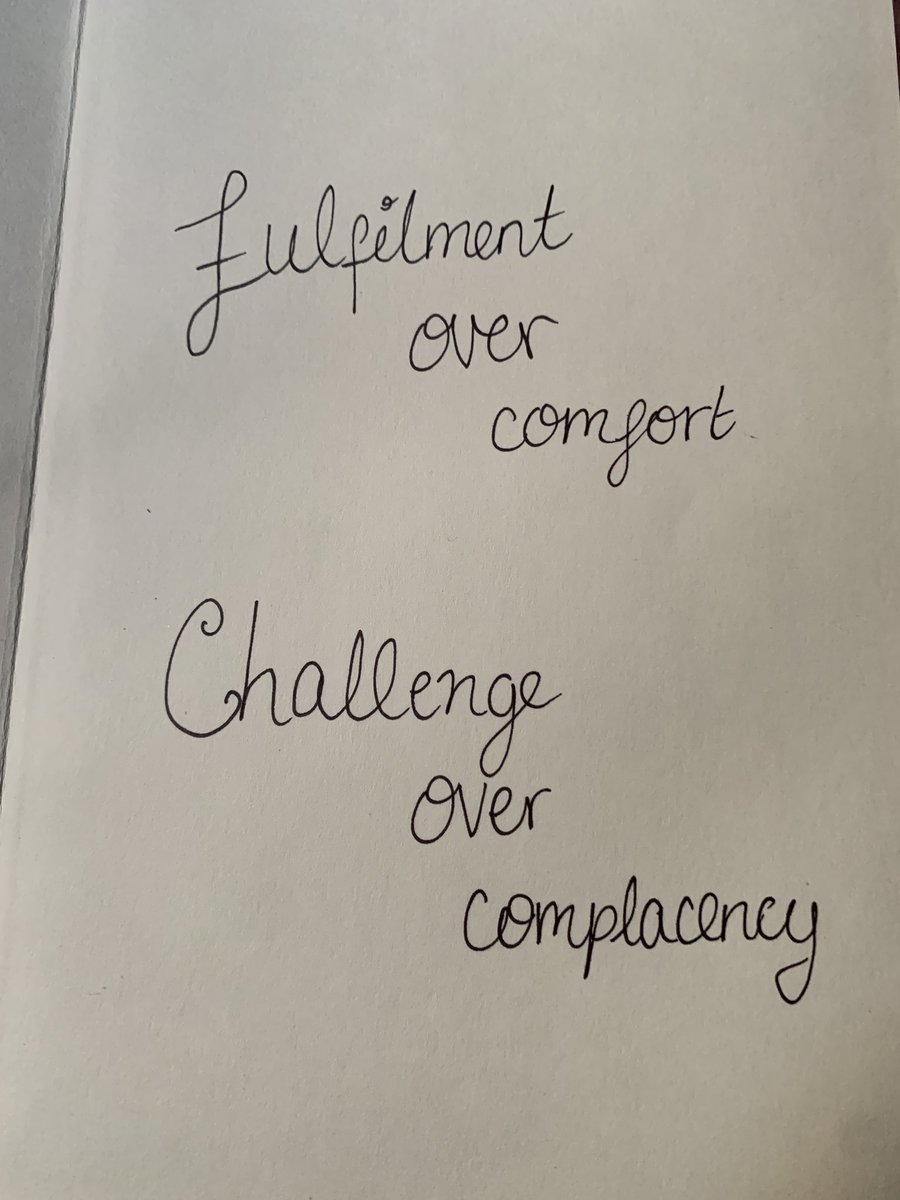 Fulfilment
over
comfort
Challenge
over
complacency